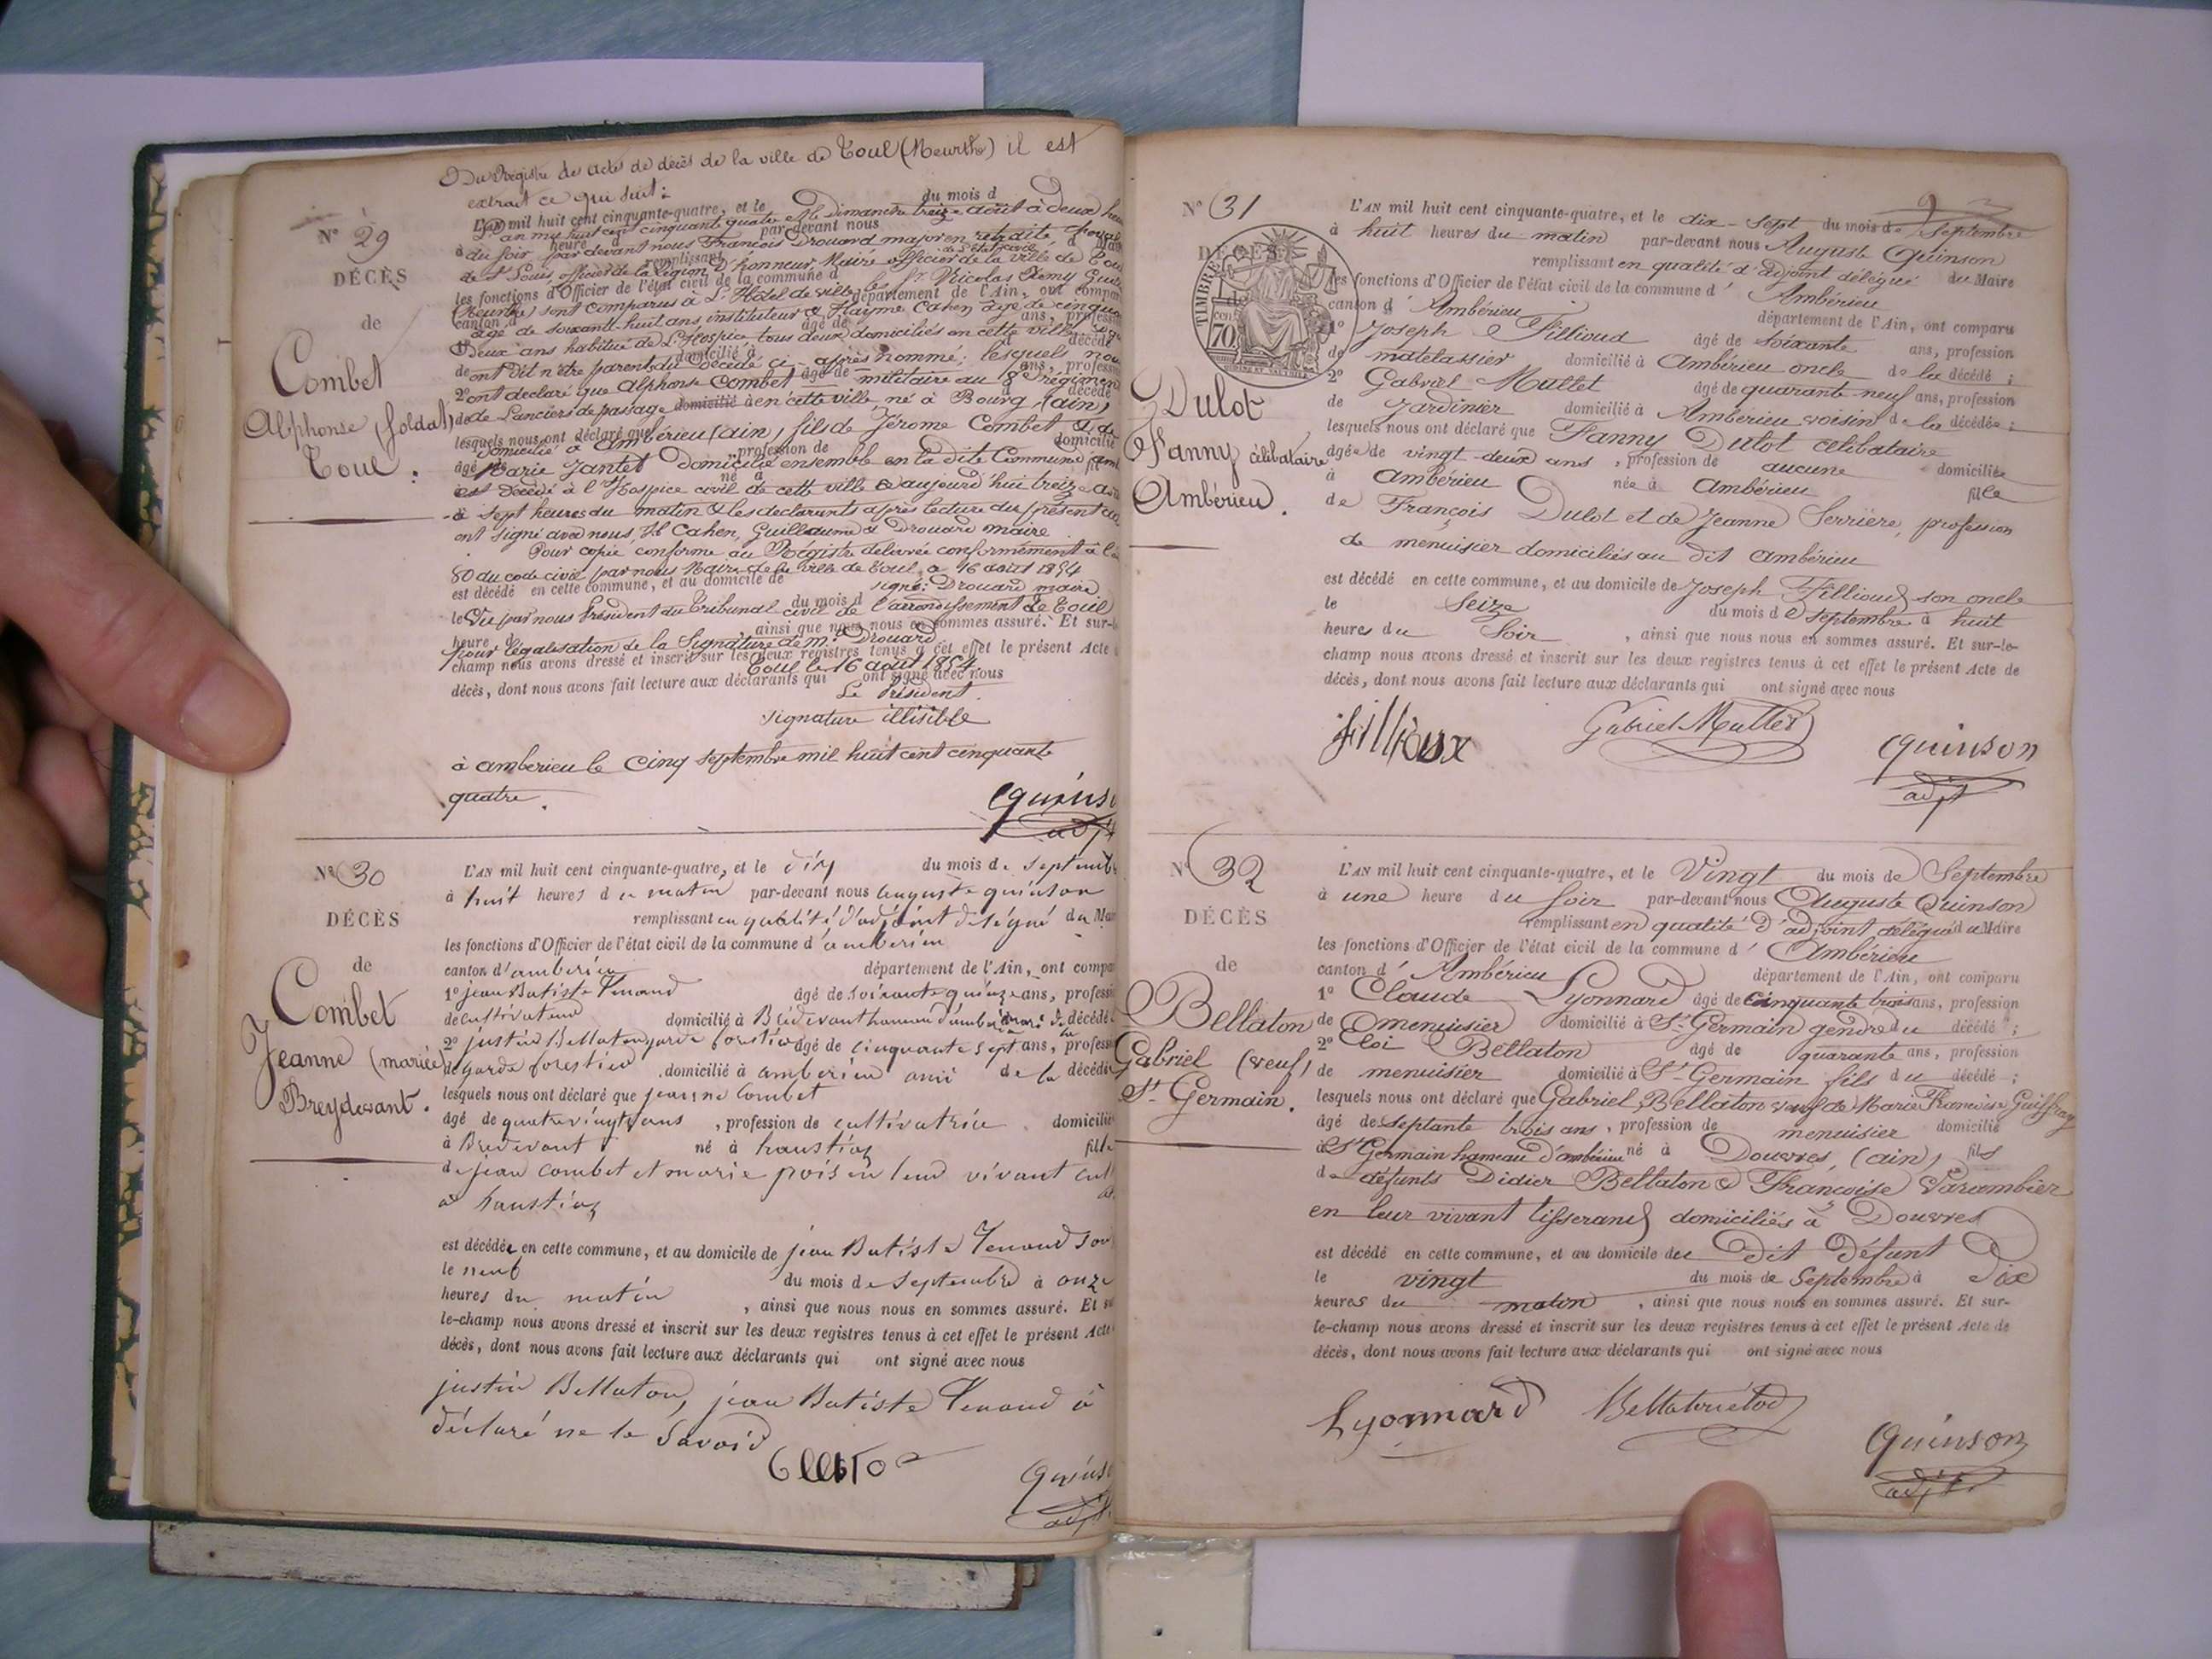 Du Registre des actes de décès de la ville de Toul (Meurthe) il est
extrait ce qui suit :
L'AN mil huit cent cinquante-quatre, et le du mois d
L'an mil huit cent cinquante quatre et le Dimanche treize août à deux
par-devant nous
Nº 29
heure d
du soir par devant nous François Drouard major en retraite
DÉCÈS
remplissant
de St Louis officier de la Légion d'honneur, Maire officier de la ville de
les fonctions d'Officier de l'état civil de la commune d
département de l'Ain, ont
(Meurthe) sont comparus à L'Hôtel de ville les Sr Nicolas Remy
de
canton d
âgé de soixante huit ans, instituteur & Hayme Cahen âgé de cinquante
deux ans habitué de L'Hospice tous deux domiciliés en cette ville
Combet
ont dit n'être parents du décédé ci-après nommé ; lesquels nous
ont déclaré que Alphonse Combet militaire au 8e régiment
Alphonse (soldat)
de Lanciers de passage domicilié en cette ville né à Bourg, (ain)
lesquels nous ont déclaré que
domicilié à Ambérieu (ain) fils de Jérome Combet & de
Toul.
Marie Jantet Domicilié ensemble en la dite Commune
est Décédé à l'Hospice civil de cette ville aujourd'hui treize
à sept heures du matin & les declarants après lecture du présent
ont signé avec nous, H Cahen, Guillaume & Drouard maire
Pour copie conforme au Régistre délivrée conformément à
80 du code civil par nous Maire de la ville de Toul, a 16 août 1854
est décédé en cette commune, et au domicile de signé : Drouard maire
du mois d
Vu par nous Président du Tribunal civil de l'arrondissement de Toul
, ainsi que nous nous en sommes assuré. Et sur-le-
pour légalisation de la Signature de mr Drouard
champ nous avons dressé et inscrit sur les deux registres tenus à cet effet le présent Acte
Toul le 16 août 1854
décès, dont nous avons fait lecture aux déclarants qui ont signé avec nous
Le Président
signature illisible
à amberieu le cinq septembre mil huit cent cinquante
quatre.
quinson
adjt
Nº 30
L'AN mil huit cent cinquante-quatre, et le dix du mois de septembre
à huit heures du matin par-devant nous auguste quinson
DÉCÈS
remplissant en qualité d'adjoint délégué du
les fonctions d'Officier de l'état civil de la commune d'amberieu
de
canton d'amberieu département de l'Ain, ont
Combet
1º jean Batiste Tenand âgé de soixante quinze ans,
de cultivateur domicilié à Bredevant hameau d'amb mari de la décédé
Jeanne (mariée)
2º justin Bellaton garde forestier âgé de cinquante sept ans,
de garde forestier domicilié à amberieu ami de la
Breydevant.
lesquels nous ont déclaré que jeanne Combet
âgé de quatre vingts ans, profession de cultivatrice domicilié
à Bredevant né à fille
de jean combet et marie en leur vivant
a
est décédée en cette commune, et au domicile de jean Batiste Tenand son
le neuf du mois de septembre à onze
heures du matin, ainsi que nous nous en sommes assuré. Et
le-champ nous avons dressé et inscrit sur les deux registres tenus à cet effet le présent Acte
décès, dont nous avons fait lecture aux déclarants qui ont signé avec nous
justin Bellaton, jean Batiste Tenand à
déclaré ne le savoir
quinson
adjt.
Nº 31
L'AN mil huit cent cinquante-quatre, et le dix-sept du mois de Septembre
à huit heures du matin par-devant nous Auguste Quinson
DÉCÈS
remplissant en qualité d'adjoint délégué du Maire
TIMBRE
70
les fonctions d'Officier de l'état civil de la commune d' Ambérieu
canton d' Ambérieu département de l'Ain, ont comparu
1º Joseph Fillioud âgé de soixante ans, profession
de matelassier domicilié à Ambérieu oncle de la décédé ;
Dulot
2º Gabriel Mullet âgé de quarante neuf ans, profession
de Jardinier domicilié à Ambérieu voisin de la décédée ;
Fanny célibataire
lesquels nous ont déclaré que Fanny Dulot celibataire
âgée de vingt-deux ans, profession de aucune domiciliée
Ambérieu.
à Ambérieu née à Ambérieu fille
de François Dulot et de Jeanne Serrière, profession
de menuisier domiciliés au dit ambérieu
est décédé en cette commune, et au domicile de Joseph Fillioud son oncle
le Seize du mois de septembre à huit
heures du Soir, ainsi que nous nous en sommes assuré. Et sur-le-
champ nous avons dressé et inscrit sur les deux registres tenus à cet effet le présent Acte de
décès, dont nous avons fait lecture aux déclarants qui ont signé avec nous
Gabriel Mullet
quinson
adjt
Nº 32
L'AN mil huit cent cinquante-quatre, et le Vingt du mois de Septembre
à une heure du soir par-devant nous Auguste Quinson
DÉCÈS
remplissant en qualité d'adjoint délégué du Maire
les fonctions d'Officier de l'état civil de la commune d' Ambérieu
de
canton d' Ambérieu département de l'Ain, ont comparu
1º Claude Lyonnard âgé de cinquante trois ans, profession
Bellaton
de menuisier domicilié à St Germain gendre du décédé ;
2º Eloi Bellaton âgé de quarante ans, profession
Gabriel (veuf)
de menuisier domicilié à St Germain fils du décédé ;
St Germain.
lesquels nous ont déclaré que Gabriel Bellaton veuf de Marie Francoise Guiffray
âgé de septante trois ans, profession de menuisier domicilié
à St Germain hameau d'ambérieu né à Douvres, (ain) fils
de défunts Didier Bellaton & Françoise Varambier
en leur vivant tisserand domiciliés à Douvres
est décédé en cette commune, et au domicile du Dit Défunt
le vingt du mois de Septembre à Dix
heures du matin, ainsi que nous nous en sommes assuré. Et sur-
le-champ nous avons dressé et inscrit sur les deux registres tenus à cet effet le présent Acte de
décès, dont nous avons fait lecture aux déclarants qui ont signé avec nous
Lyonnard
quinson
adjt.